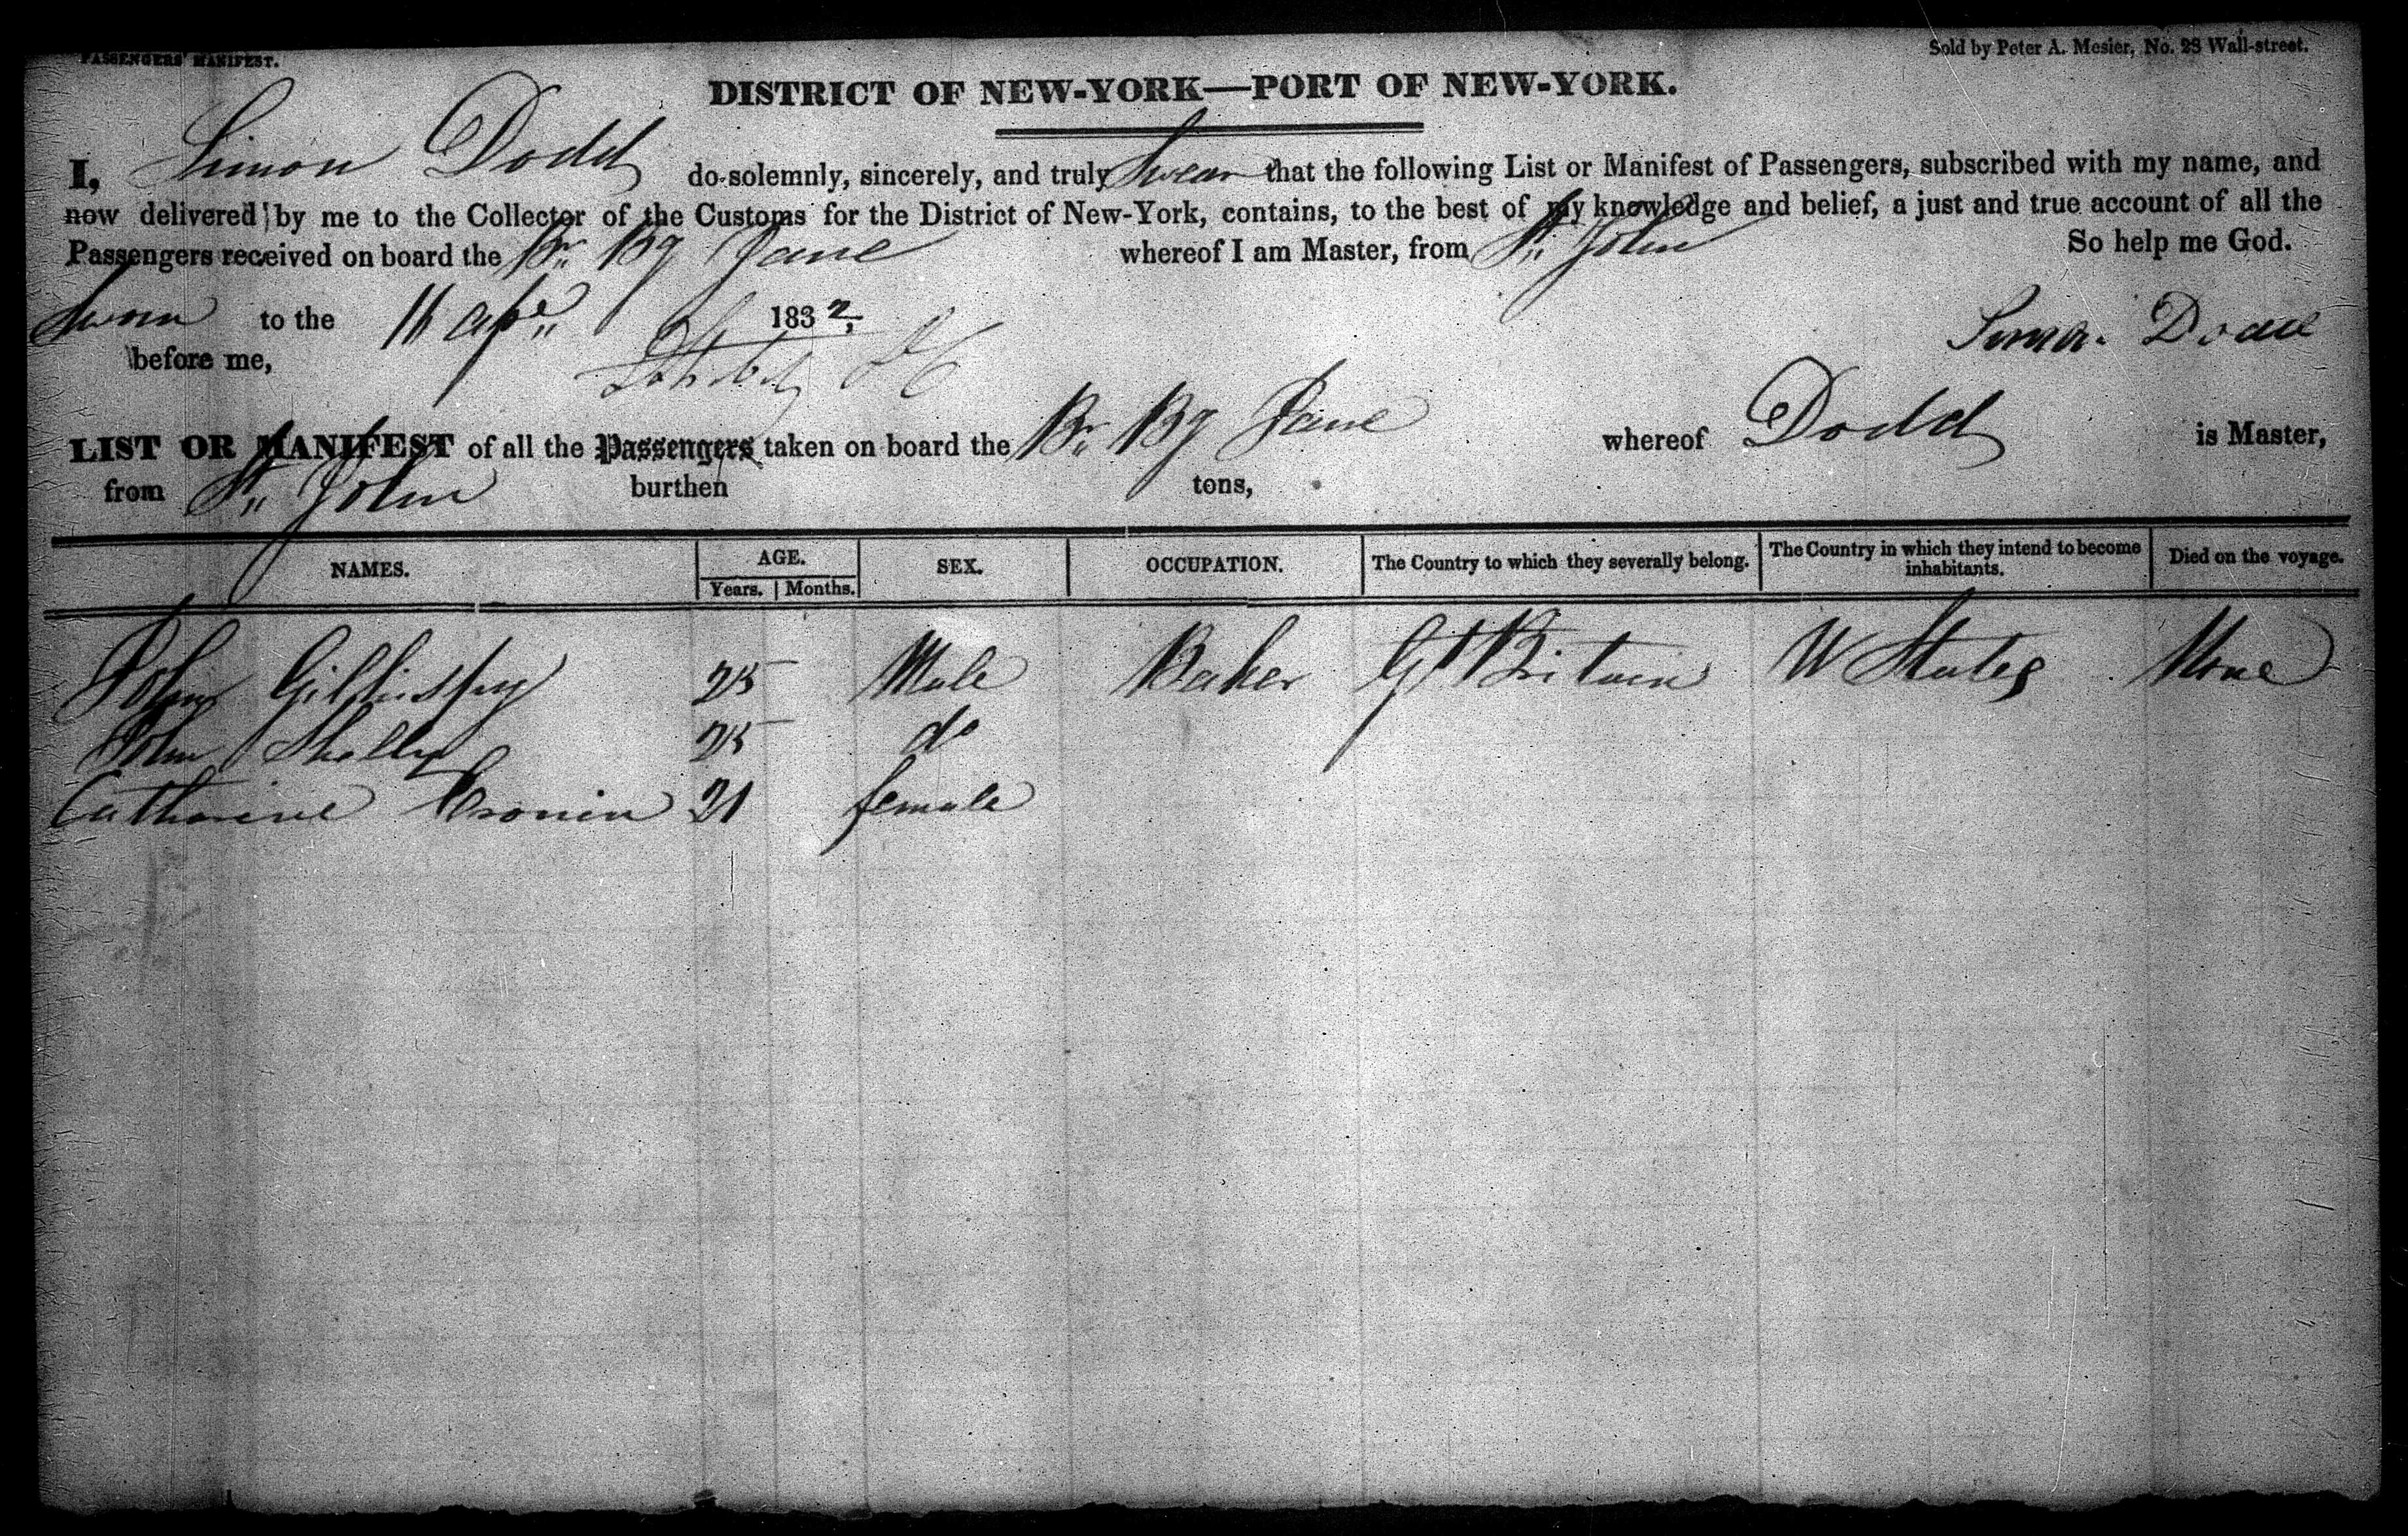 PASSENGERS' MANIFEST.
Sold by Peter A. Mesier, No. 28 Wall-street.
DISTRICT OF NEW-YORK—PORT OF NEW-YORK.
I, Simon Dodd do solemnly, sincerely, and truly Swear that the following List or Manifest of Passengers, subscribed with my name, and
now delivered by me to the Collector of the Customs for the District of New-York, contains, to the best of my knowledge and belief, a just and true account of all the
Passengers received on board the Br Bg Jane whereof I am Master, from St John So help me God.
Sworn to the 11 1832
before me,
Dodd
LIST OR MANIFEST of all the Passengers taken on board the Br Bg Jane whereof Dodd is Master,
from St John burthen tons,
NAMES. AGE. SEX. OCCUPATION. The Country to which they severally belong. The Country in which they intend to become inhabitants. Died on the voyage.
Years. Months.
John 25 Male Baker Gt Britain U States None
John Shelly 25 do
Catharine Cronin 21 female